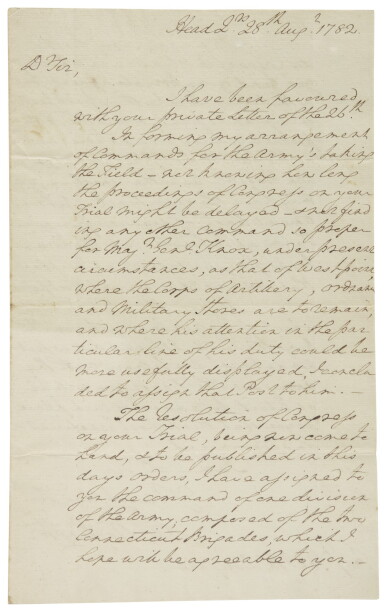 Head Qrs 28th Augt. 1782.
Dr Sir,
I have been favoured
with your private Letter of the 26th.
In forming my arrangement
of Commands for the Army's taking
the Field – not knowing how long
the proceedings of Congress on your
Trial might be delayed – & not find
ing any other command so proper
for Majr Genl Knox, under present
circumstances, as that of West point,
where the Corps of Artillery, ordnance
and Military Stores are to remain,
and where his attention in the par
ticular line of his duty could be
more usefully displayed, I conclu
ded to assign that Post to him. –
The Resolution of Congress
on your Trial, being now come to
hand, & to be published in this
days orders, I have assigned to
you the command of one division
of the Army, composed of the two
Connecticut Brigades, which I
hope will be agreeable to you. –